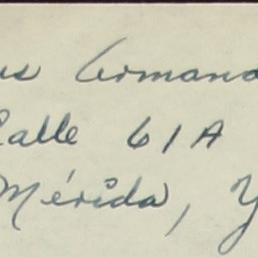 us Armand
Calle 61A
Mérida, Y